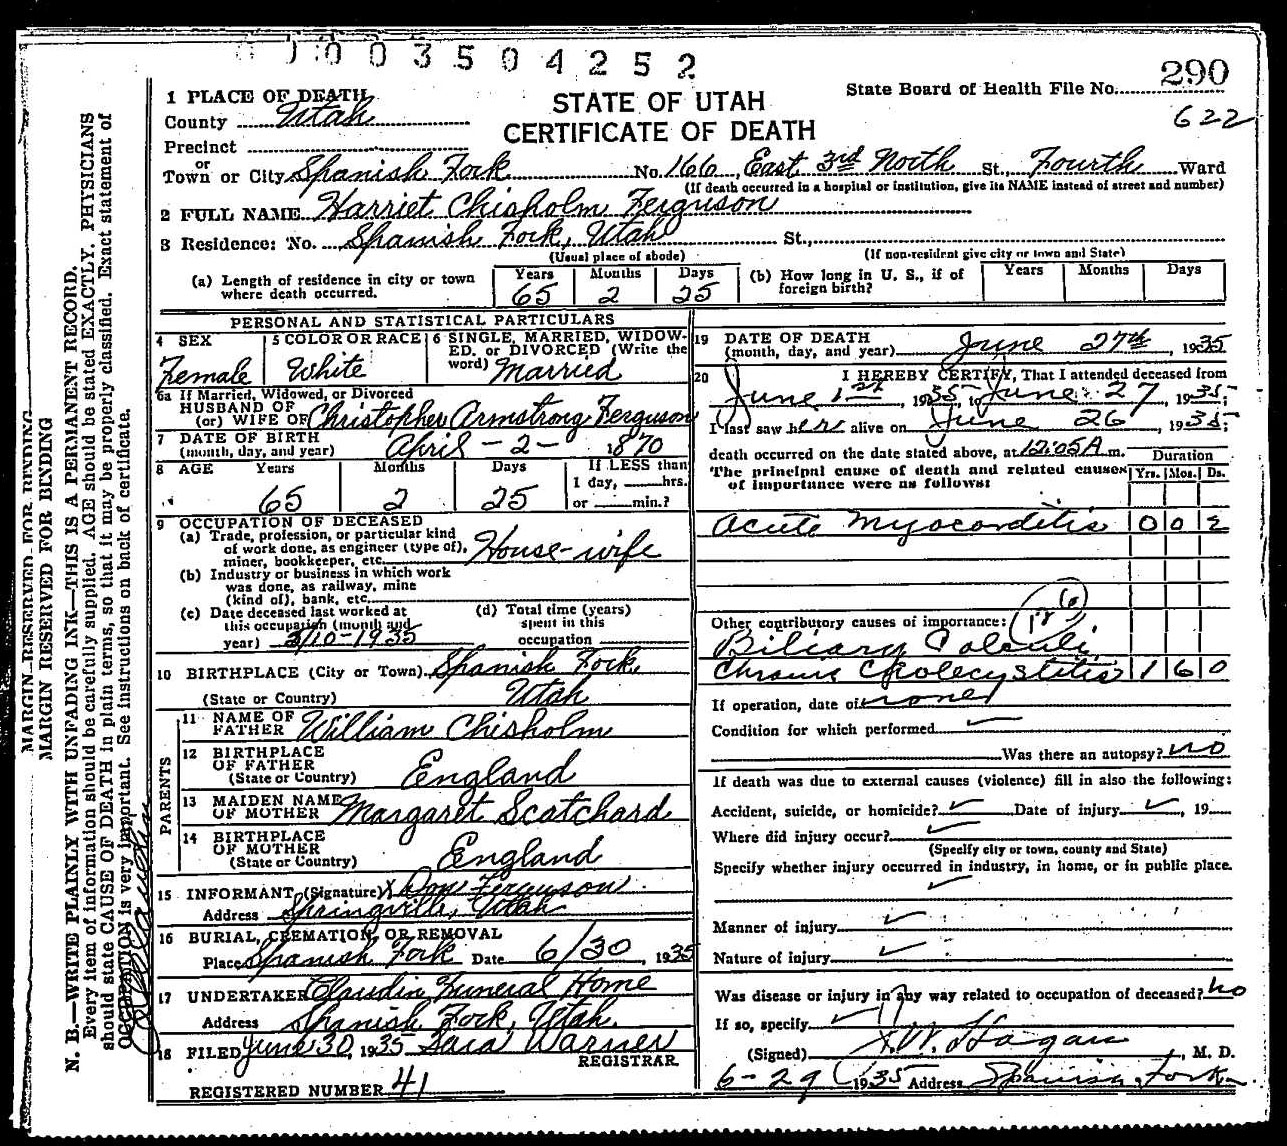 0003504252
290
622
State Board of Health File No.
STATE OF UTAH
CERTIFICATE OF DEATH
1 PLACE OF DEATH
County Utah
Precinct
or
Town or City Spanish Fork No. 166, East 3rd North St., Fourth Ward
(If death occurred in a hospital or institution, give its NAME instead of street and number)
2 FULL NAME Harriet Chisholm Ferguson
3 Residence: No. Spanish Fork, Utah St.,
(Usual place of abode) (If non-resident give city or town and State)
(a) Length of residence in city or town where death occurred. Years 65 Months 2 Days 25
(b) How long in U. S., if of foreign birth? Years Months Days
PERSONAL AND STATISTICAL PARTICULARS
4 SEX Female
5 COLOR OR RACE White
6 SINGLE, MARRIED, WIDOWED, or DIVORCED (Write the word) Married
6a If Married, Widowed, or Divorced
HUSBAND OF
(or) WIFE OF Christopher Armstrong Ferguson
7 DATE OF BIRTH
(month, day, and year) April - 2 - 1870
8 AGE Years 65 Months 2 Days 25 If LESS than 1 day, hrs. or min.?
9 OCCUPATION OF DECEASED
(a) Trade, profession, or particular kind
of work done, as engineer (type of),
miner, bookkeeper, etc. House-wife
(b) Industry or business in which work
was done, as railway, mine
(kind of), bank, etc.
(c) Date deceased last worked at
this occupation (month and
year) 3/10-1935
(d) Total time (years)
spent in this
occupation
10 BIRTHPLACE (City or Town) Spanish Fork
(State or Country) Utah
PARENTS
11 NAME OF FATHER William Chisholm
12 BIRTHPLACE OF FATHER
(State or Country) England
13 MAIDEN NAME OF MOTHER Margaret Scotchard
14 BIRTHPLACE OF MOTHER
(State or Country) England
15 INFORMANT (Signature) X Don Ferguson
Address Springville, Utah
16 BURIAL, CREMATION, OR REMOVAL
Place Spanish Fork Date 6/30, 1935
17 UNDERTAKER Claudin Funeral Home
Address Spanish Fork, Utah.
18 FILED June 30, 1935 Sara Warner
REGISTRAR
REGISTERED NUMBER 41
19 DATE OF DEATH
(month, day, and year) June 27th, 1935
20 I HEREBY CERTIFY, That I attended deceased from
June 1st, 1935 to June 27, 1935;
I last saw her alive on June 26, 1935;
death occurred on the date stated above, at 12:05 A m.
Duration
The principal cause of death and related causes
of importance were as follows: Yrs. Mos. Ds.
Acute Myocorditis 0 0 2
Other contributory causes of importance:
Biliary Calculi
Chronic Cholecystitis 1 6 0
If operation, date of none
Condition for which performed
Was there an autopsy? no
If death was due to external causes (violence) fill in also the following:
Accident, suicide, or homicide? Date of injury , 19
Where did injury occur?
(Specify city or town, county and State)
Specify whether injury occurred in industry, in home, or in public place.
Manner of injury
Nature of injury
Was disease or injury in any way related to occupation of deceased? no
If so, specify
(Signed) W. Hagan, M. D.
6-29 1935 Address Spanish Fork
MARGIN RESERVED FOR BINDING
MARGIN RESERVED FOR BINDING
N. B.—WRITE PLAINLY WITH UNFADING INK—THIS IS A PERMANENT RECORD.
Every item of information should be carefully supplied. AGE should be stated EXACTLY. PHYSICIANS
should state CAUSE OF DEATH in plain terms, so that it may be properly classified. Exact statement of
OCCUPATION is very important. See instructions on back of certificate.